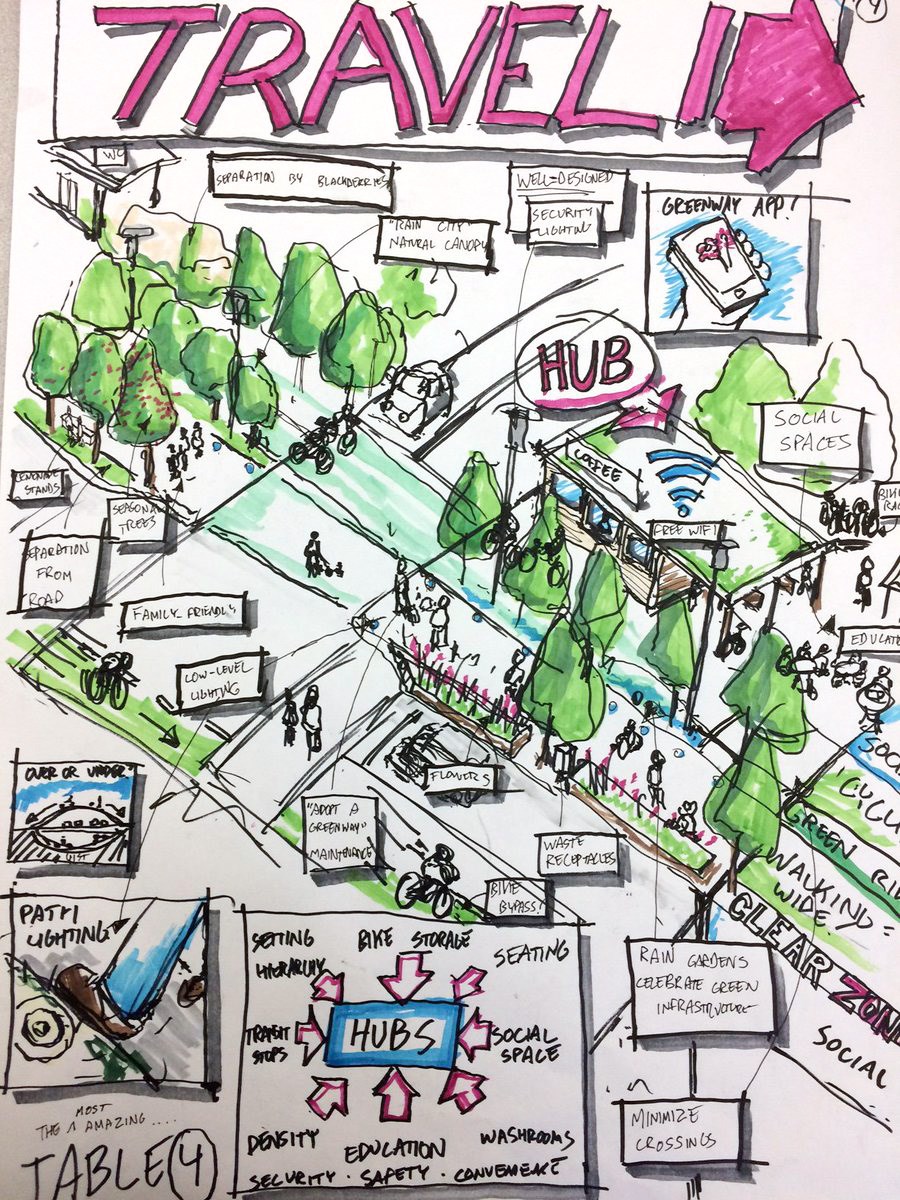 TRAVEL
4
WC
SEPARATION BY BLACKBERRIES
WELL-DESIGNED
SECURITY
LIGHTING
"RAIN CITY"
NATURAL CANOPY
GREENWAY APP!
HUB
SOCIAL
SPACES
COFFEE
FREE WIFI
LEMONADE
STANDS
SEASONAL
TREES
EPARATION
FROM
ROAD
FAMILY FRIENDLY
LOW-LEVEL
LIGHTING
EDUCAT
OVER OR UNDER?
41ST
FLOWERS
"ADOPT A
GREENWAY"
MAINTENANCE
WASTE
RECEPTACLES
BIKE
BYPASS!
GREEN
WALKING
WIDE
CLEAR ZON
SOCIAL
PATH
LIGHTING
SETTING
HIERARCHY
BIKE STORAGE
SEATING
TRANSIT
STOPS
HUBS
SOCIAL
SPACE
DENSITY
EDUCATION
WASHROOMS
SECURITY · SAFETY · CONVENIENCE
RAIN GARDENS
CELEBRATE GREEN
INFRASTRUCTURE
MINIMIZE
CROSSINGS
THE MOST AMAZING ....
TABLE 4